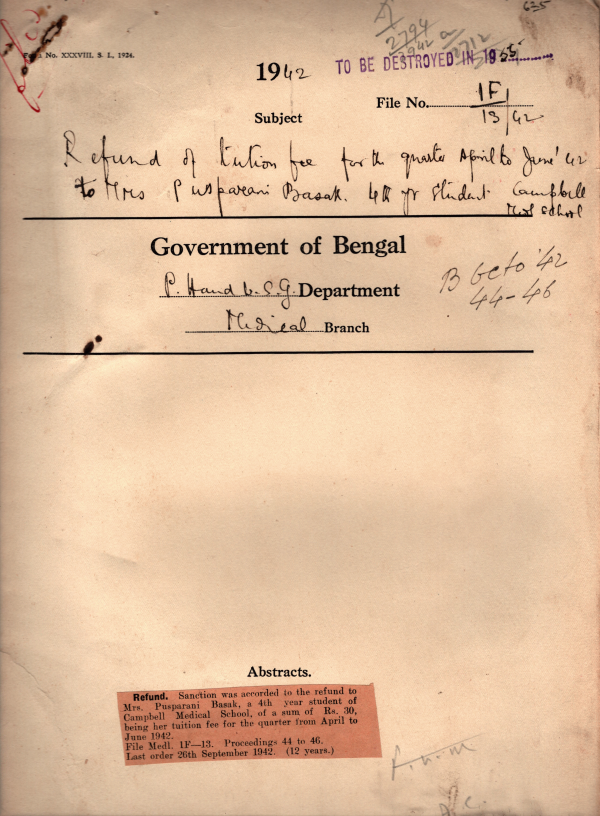 635
2794
2942
2712
Form No. XXXVIII. S. I., 1924.
TO BE DESTROYED IN 1955
1942
File No. 1F
13/42
Subject
Refund of tuition fee for the quarter April to June '42
to Mrs Pusparani Basak. 4th yr Student Campbell
Med School
Government of Bengal
P. H and L. S. G. Department
Medical Branch
B Octo '42
44-46
Abstracts.
Refund. Sanction was accorded to the refund to
Mrs. Pusparani Basak, a 4th year student of
Campbell Medical School, of a sum of Rs. 30,
being her tuition fee for the quarter from April to
June 1942.
File Medl. 1F—13. Proceedings 44 to 46.
Last order 26th September 1942. (12 years.)